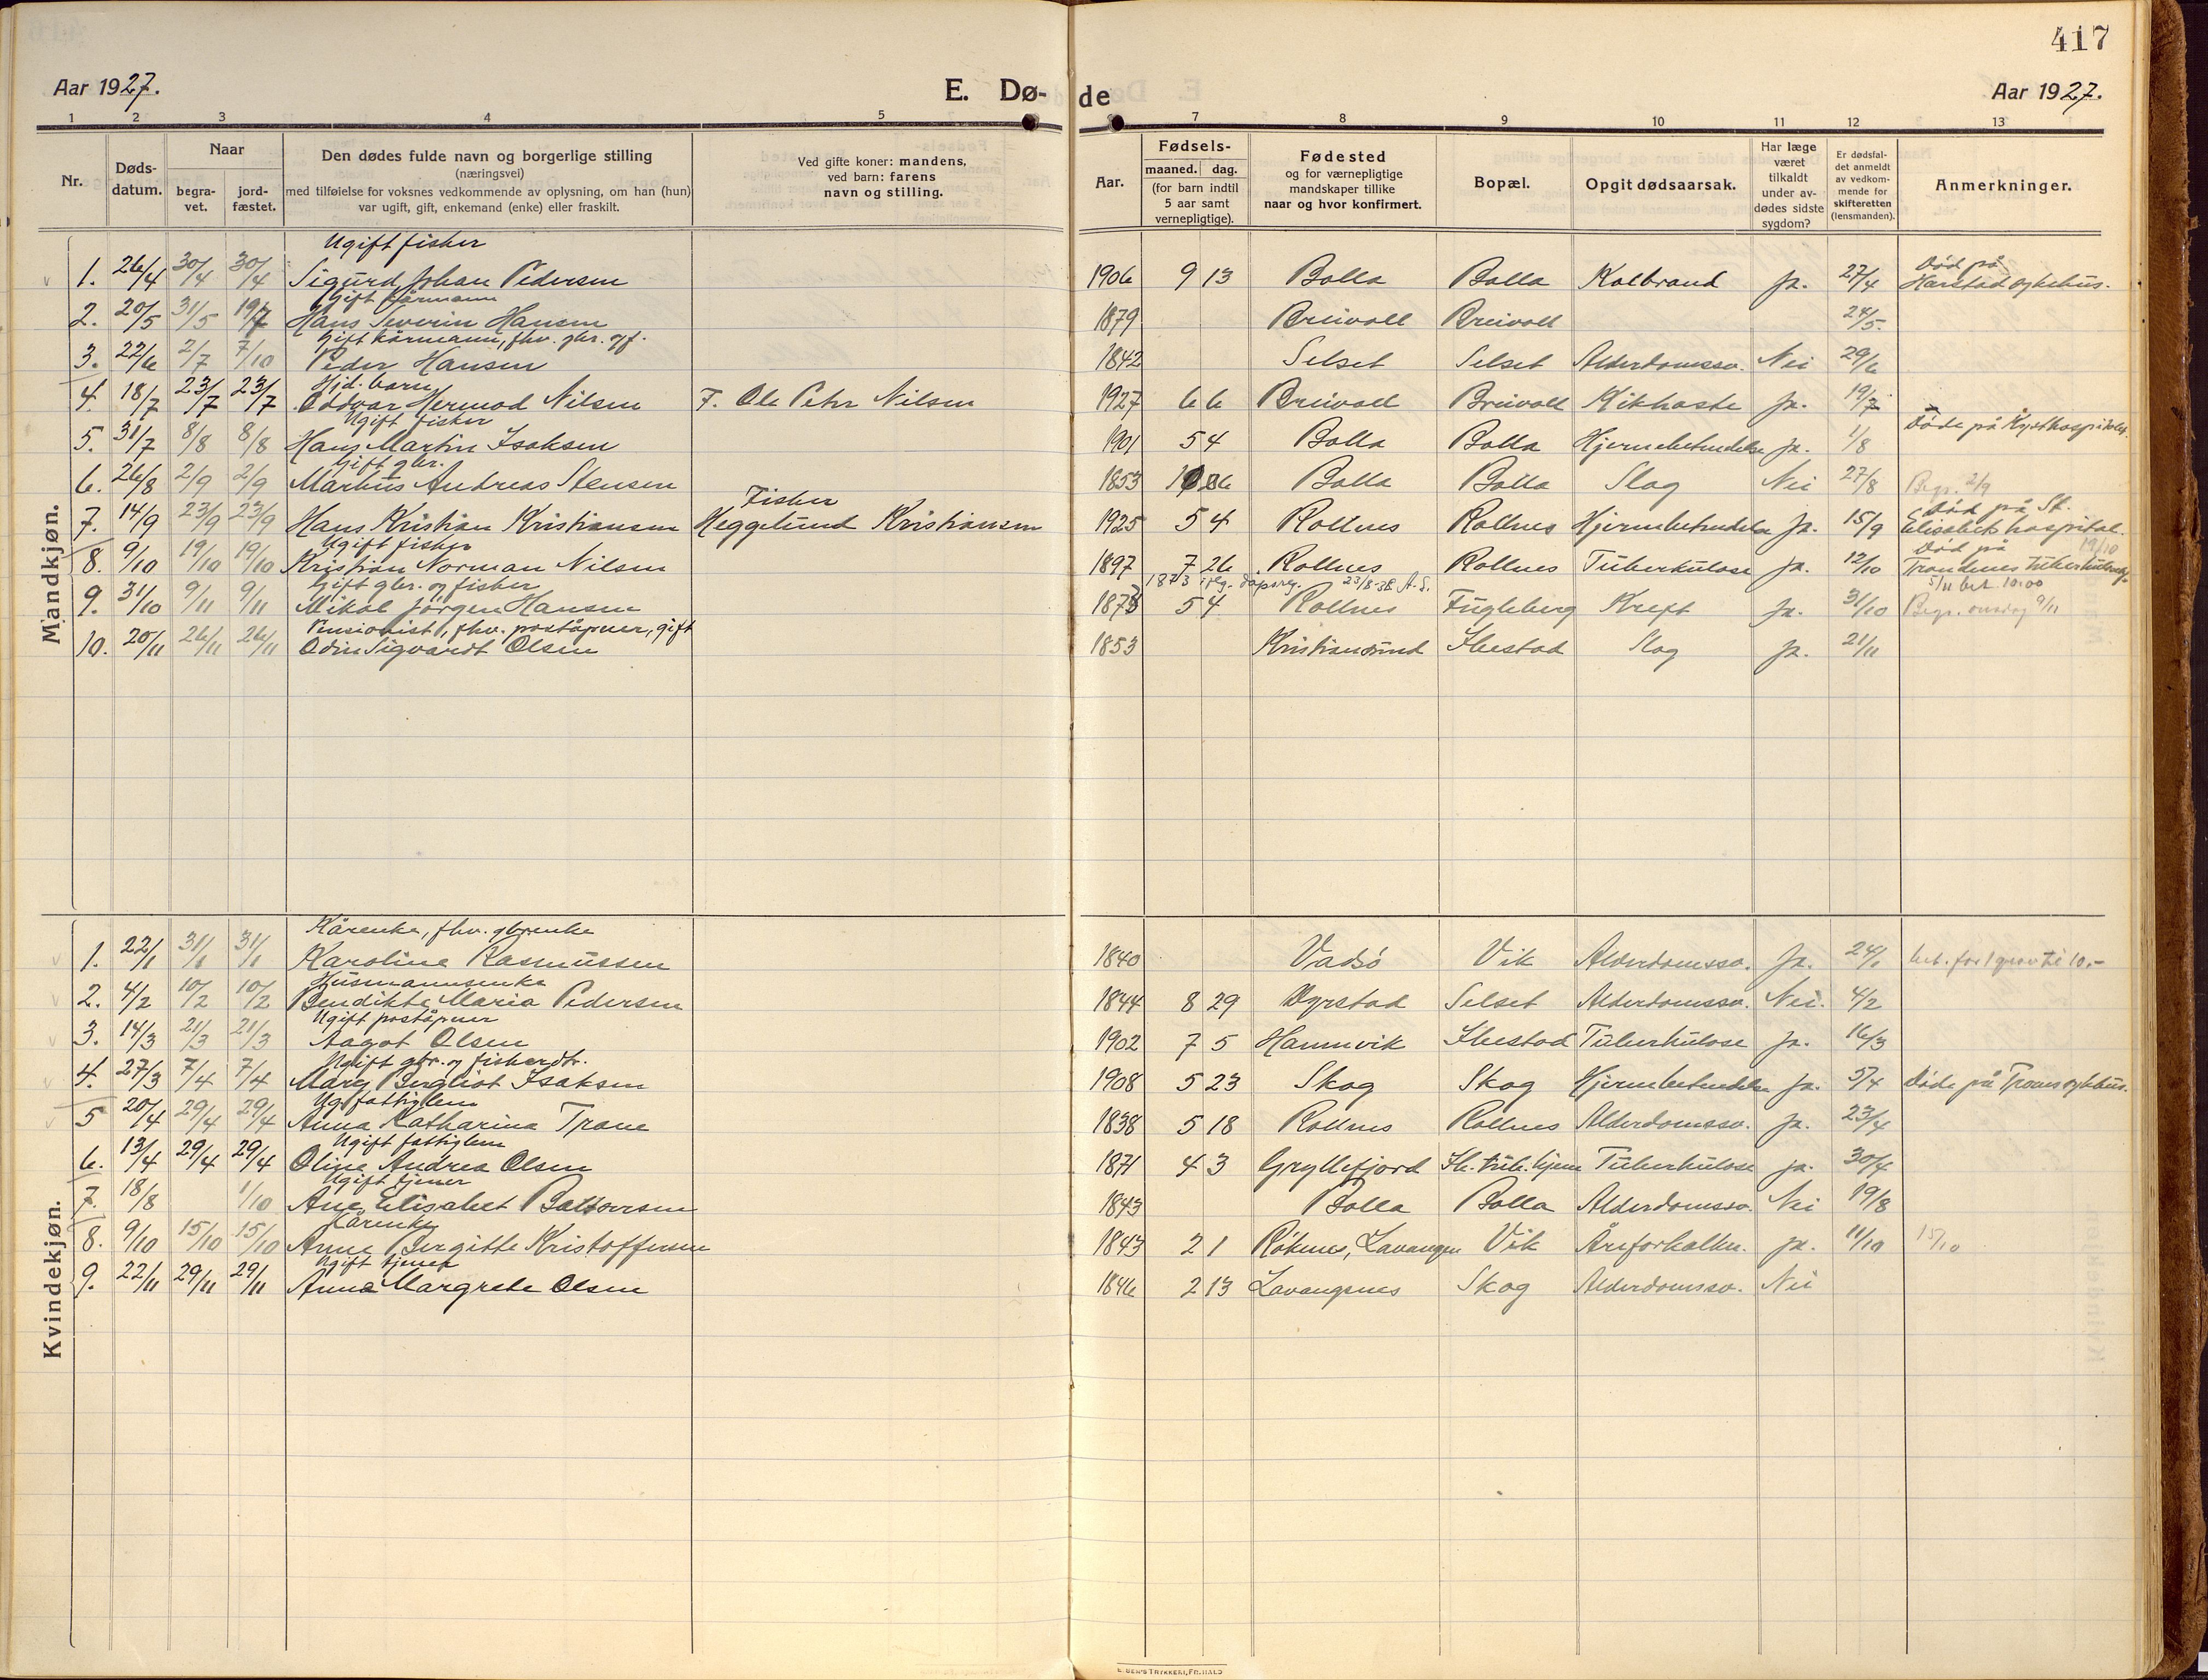 417
Aar 1927. E. Dø- de Aar 1927.
1 2 3 4 5 7 8 9 10 11 12 13
Nr.
Døds-
datum.
Naar
begra-
vet.
jord-
fæstet.
Den dødes fulde navn og borgerlige stilling
(næringsvei)
med tilføielse for voksnes vedkommende av oplysning, om han (hun)
var ugift, gift, enkemand (enke) eller fraskilt.
Ved gifte koner: mandens,
ved barn: farens
navn og stilling.
Aar.
Fødsels-
maaned. dag.
(for barn indtil
5 aar samt
vernepligtige).
Fødested
og for værnepligtige
mandskaper tillike
naar og hvor konfirmert.
Bopæl.
Opgit dødsaarsak.
Har læge
været
tilkaldt
under av-
dødes sidste
sygdom?
Er dødsfal-
det anmeldt
av vedkom-
mende for
skifteretten
(lensmanden).
Anmerkninger.
Mandkjøn.
Ugift fisker
1. 26/4 30/4 30/4 Sigurd Johan Pedersen 1906 9 13 Bolla Bolla Kolbrand Ja. 27/4 Død på Harstad sykehus.
Gift kårmann
2. 20/5 31/5 19/7 Hans Severin Hansen 1879 Breivoll Breivoll 24/5.
Gift kårmann, fhv. gbr. og f.
3. 22/6 2/7 7/10 Peder Hansen 1842 Selset Selset Alderdomssv. Nei 29/6
Hjd. barn
4. 18/7 23/7 23/7 Oddvar Hermod Nilsen F. Ole Peter Nilsen 1927 6 6 Breivoll Breivoll Kikhoste Ja. 19/7
Ugift fisker
5. 31/7 8/8 8/8 Hans Martin Isaksen 1901 5 4 Bolla Bolla Hjernebetendelse Ja. 1/8 Døde på Kysthospitalet.
Gift gbr.
6. 26/8 2/9 2/9 Markus Andreas Stensen 1853 26 Bolla Bolla Slag Nei 27/8 Begr. 2/9
Fisker
7. 14/9 23/9 23/9 Hans Kristian Kristiansen Heggelund Kristiansen 1925 5 4 Rollnes Rollnes Hjernebetendelse Ja. 15/9 Død på St. Elisabeth hospital.
Ugift fisker
8. 9/10 19/10 19/10 Kristian Norman Nilsen 1897 7 26 Rollnes Rollnes Tuberkulose Ja. 12/10 Død på 19/10
Gift gbr. og fisker 1873 iflg. dåpsreg. 23/8-38 A.S. 5/11 bet. 10.00
9. 31/10 9/11 9/11 Mikal Jørgen Hansen 1873 5 4 Rollnes Fugleberg Kreft Ja. 31/10 Begr. onsdag 9/11
Pensionist, fhv. poståpner, gift
10. 20/11 26/11 26/11 Odin Sigvardt Olsen 1853 Kristiansund Ibestad Slag Ja. 21/11
Kvindekjøn.
Kårenke, fhv. gbrenke
1. 22/1 31/1 31/1 Karoline Rasmussen 1840 Vadsø Vik Alderdomssv. Ja. 24/1 bet. for 1 grav til 10.-
Husmannsenke
2. 4/2 10/2 10/2 Bendikte Maria Pedersen 1844 8 29 Dyrstad Selset Alderdomssv. Nei. 4/2
Ugift poståpner
3. 14/3 21/3 21/3 Aagot Olsen 1902 7 5 Hamnvik Ibestad Tuberkulose Ja. 16/3
Ugift gbr. og fisker dtr.
4. 27/3 7/4 7/4 Mary Bergliot Isaksen 1908 5 23 Skog Skog Hjernebetendelse Ja. 5/4 Døde på Troms sykehus.
Ug. fattiglem
5 20/4 29/4 29/4 Anna Katharina Trane 1838 5 18 Rollnes Rollnes Alderdomssv. Ja. 23/4
Ugift fattiglem
6. 13/4 29/4 29/4 Oline Andrea Olsen 1871 4 3 Gryllefjord Ib. tub. hjem Tuberkulose ja. 30/4
Ugift tjener
7. 18/8 1/10 Ane Elisabet Baltsersen 1843 Bolla Bolla Alderdomssv. Nei 19/8
Kårenke
8. 9/10 15/10 15/10 Anne Bergitte Kristoffersen 1843 2 1 Røknes, Lavangen Vik Åreforkalkn. ja. 11/10 15/10
Ugift tjener
9. 22/11 29/11 29/11 Anna Margrete Olsen 1846 2 13 Lavangsnes Skog Alderdomssv. Nei